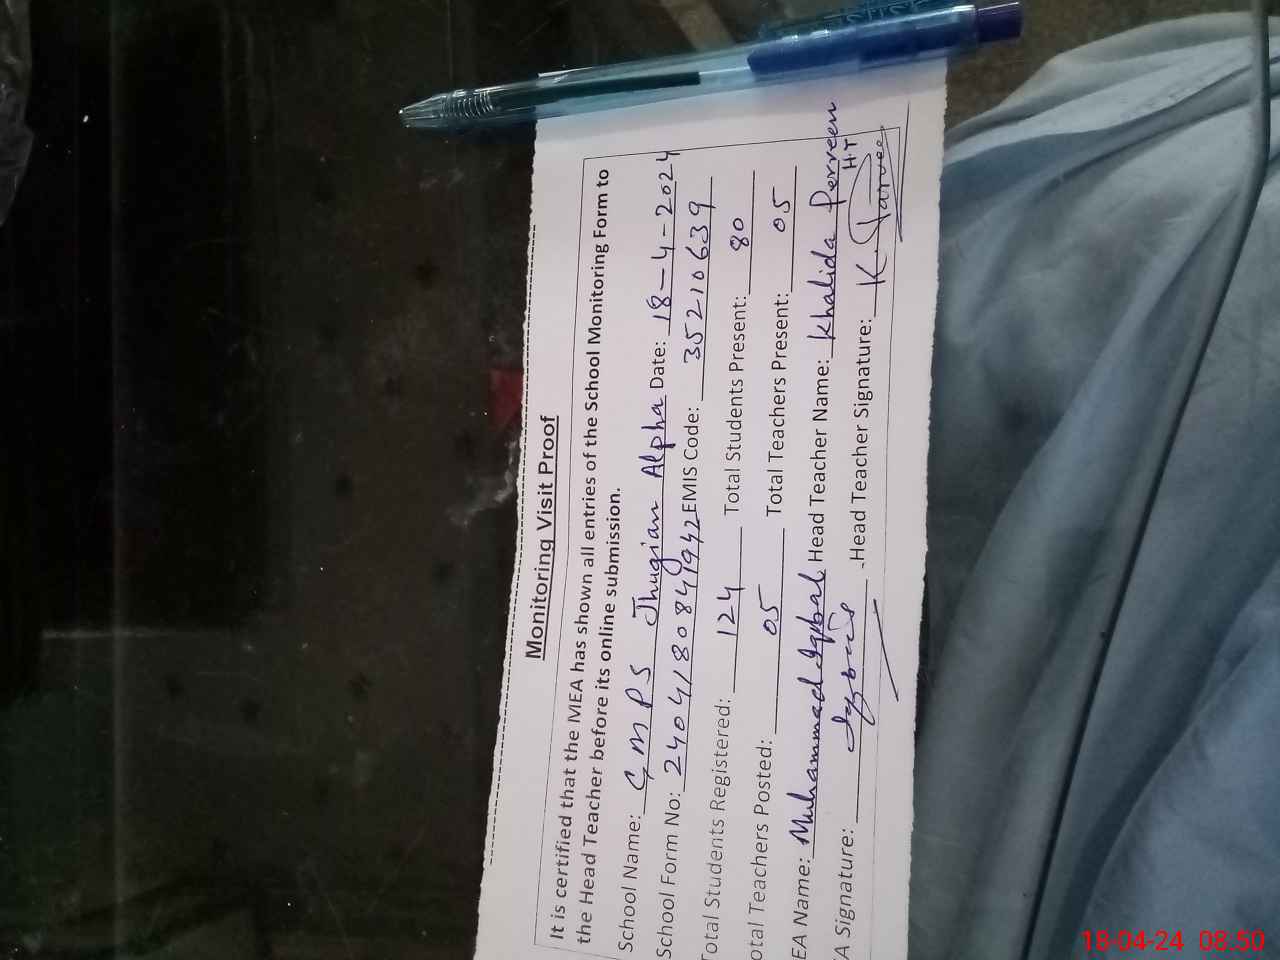 Monitoring Visit Proof
It is certified that the MEA has shown all entries of the School Monitoring Form to
the Head Teacher before its online submission.
School Name: GMPS Jhugian Alpha Date: 18-4-2024
School Form No: 2404180841942 EMIS Code: 35210639
Total Students Registered: 124 Total Students Present: 80
otal Teachers Posted: 05 Total Teachers Present: 05
EA Name: Muhammad Iqbal Head Teacher Name: Khalida Perveen
A Signature: Head Teacher Signature: K. Parveen H.T
18-04-24 08:50